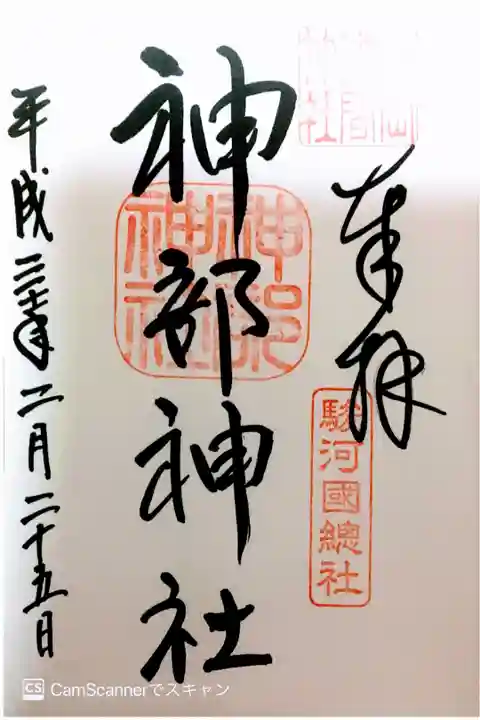 奉拝
駿河國總社
神部神社
神部神社
平成三十年二月二十五日
CS CamScannerでスキャン